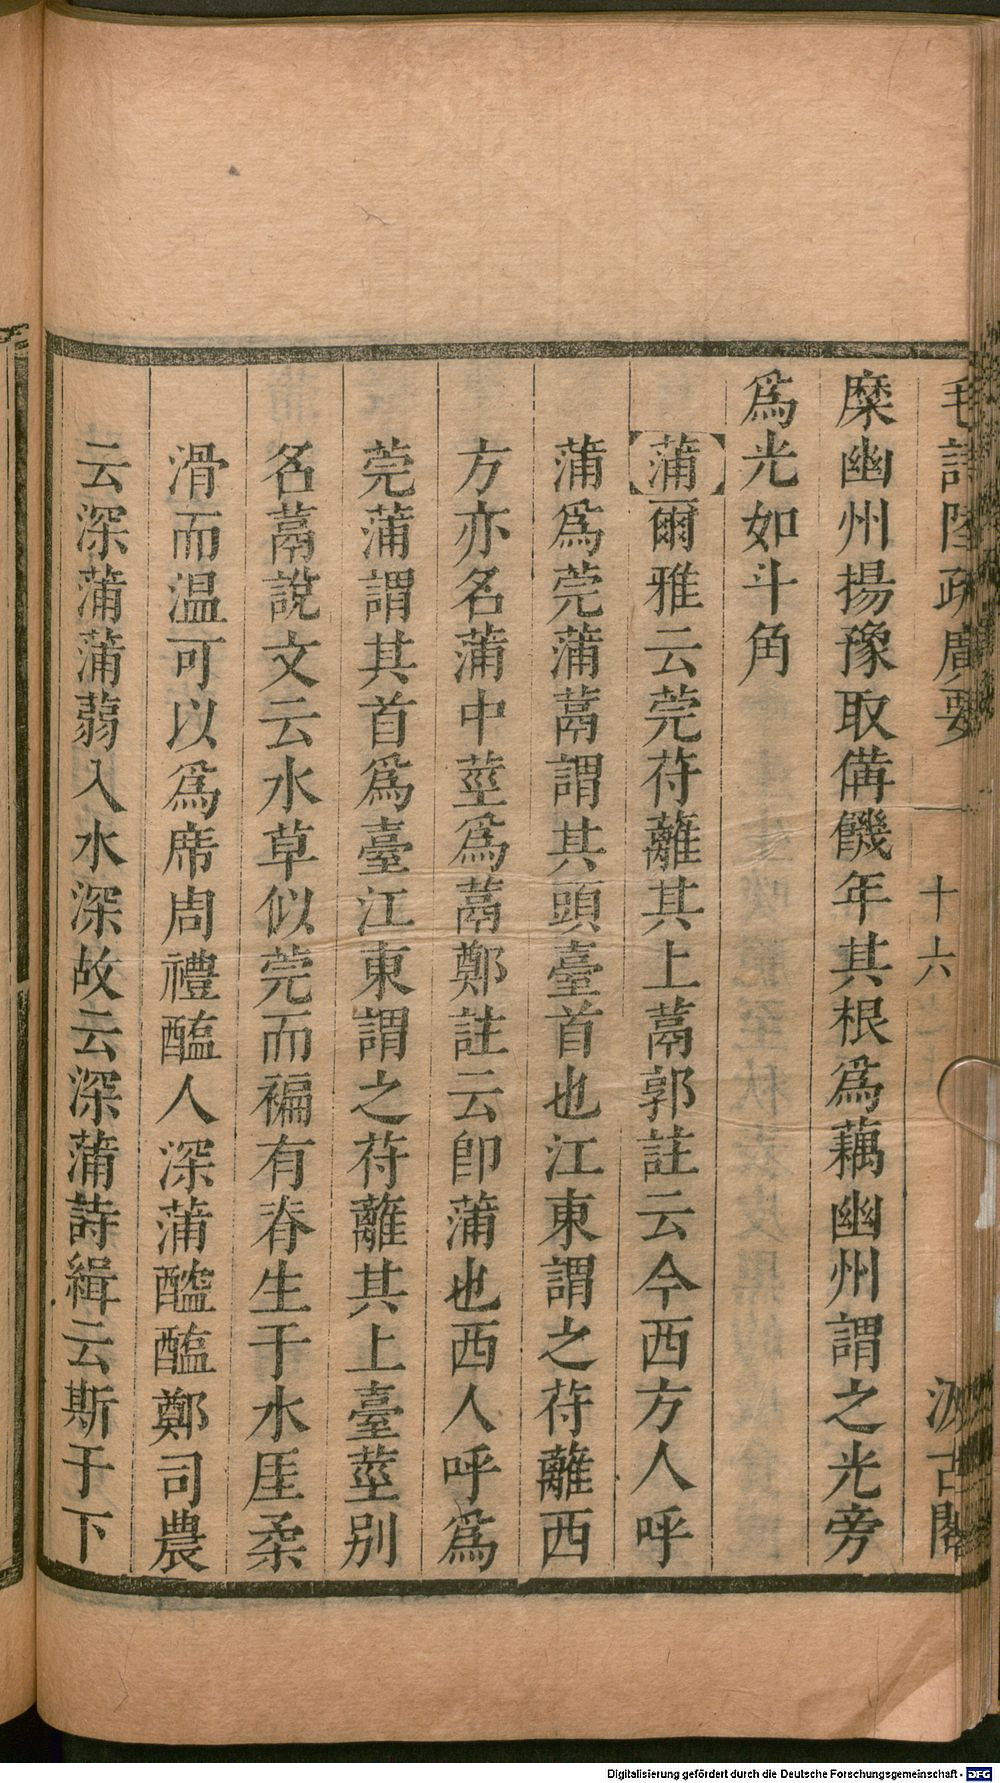 毛詩陸疏廣要
十六
汲古閣
糜幽州揚豫取備饑年其根爲藕幽州謂之光旁
爲光如斗角
蒲爾雅云莞苻蘺其上萮郭註云今西方人呼
蒲爲莞蒲萮謂其頭臺首也江東謂之苻蘺西
方亦名蒲中莖爲萮鄭註云卽蒲也西人呼爲
莞蒲謂其首爲臺江東謂之苻蘺其上臺莖别
名萮說文云水草似莞而褊有脊生于水厓柔
滑而温可以爲席周禮醢人深蒲醓醢鄭司農
云深蒲蒲蒻入水深故云深蒲詩緝云斯干下
Digitalisierung gefördert durch die Deutsche Forschungsgemeinschaft - DFG